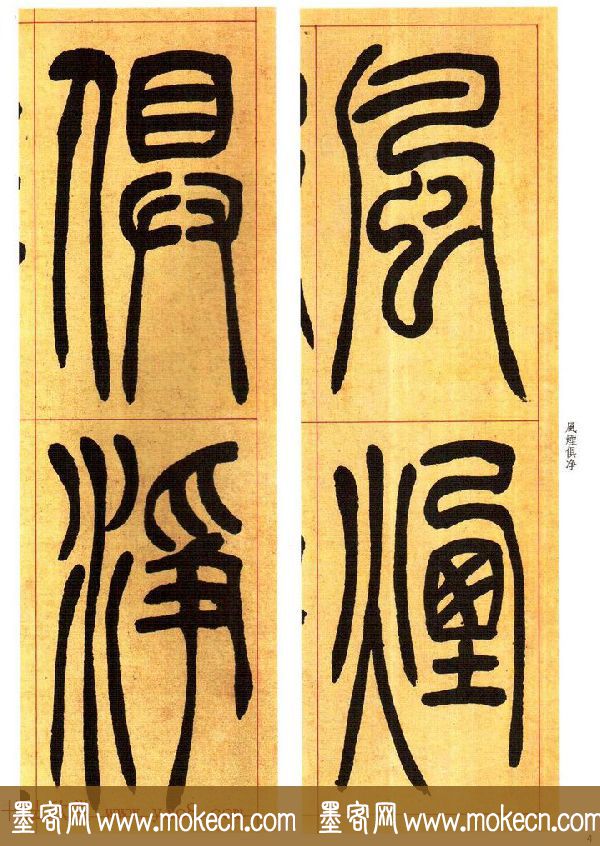 風煙
俱淨
風煙俱净
墨客网 www.mokecn.com 墨客网 www.mokecn.com
4